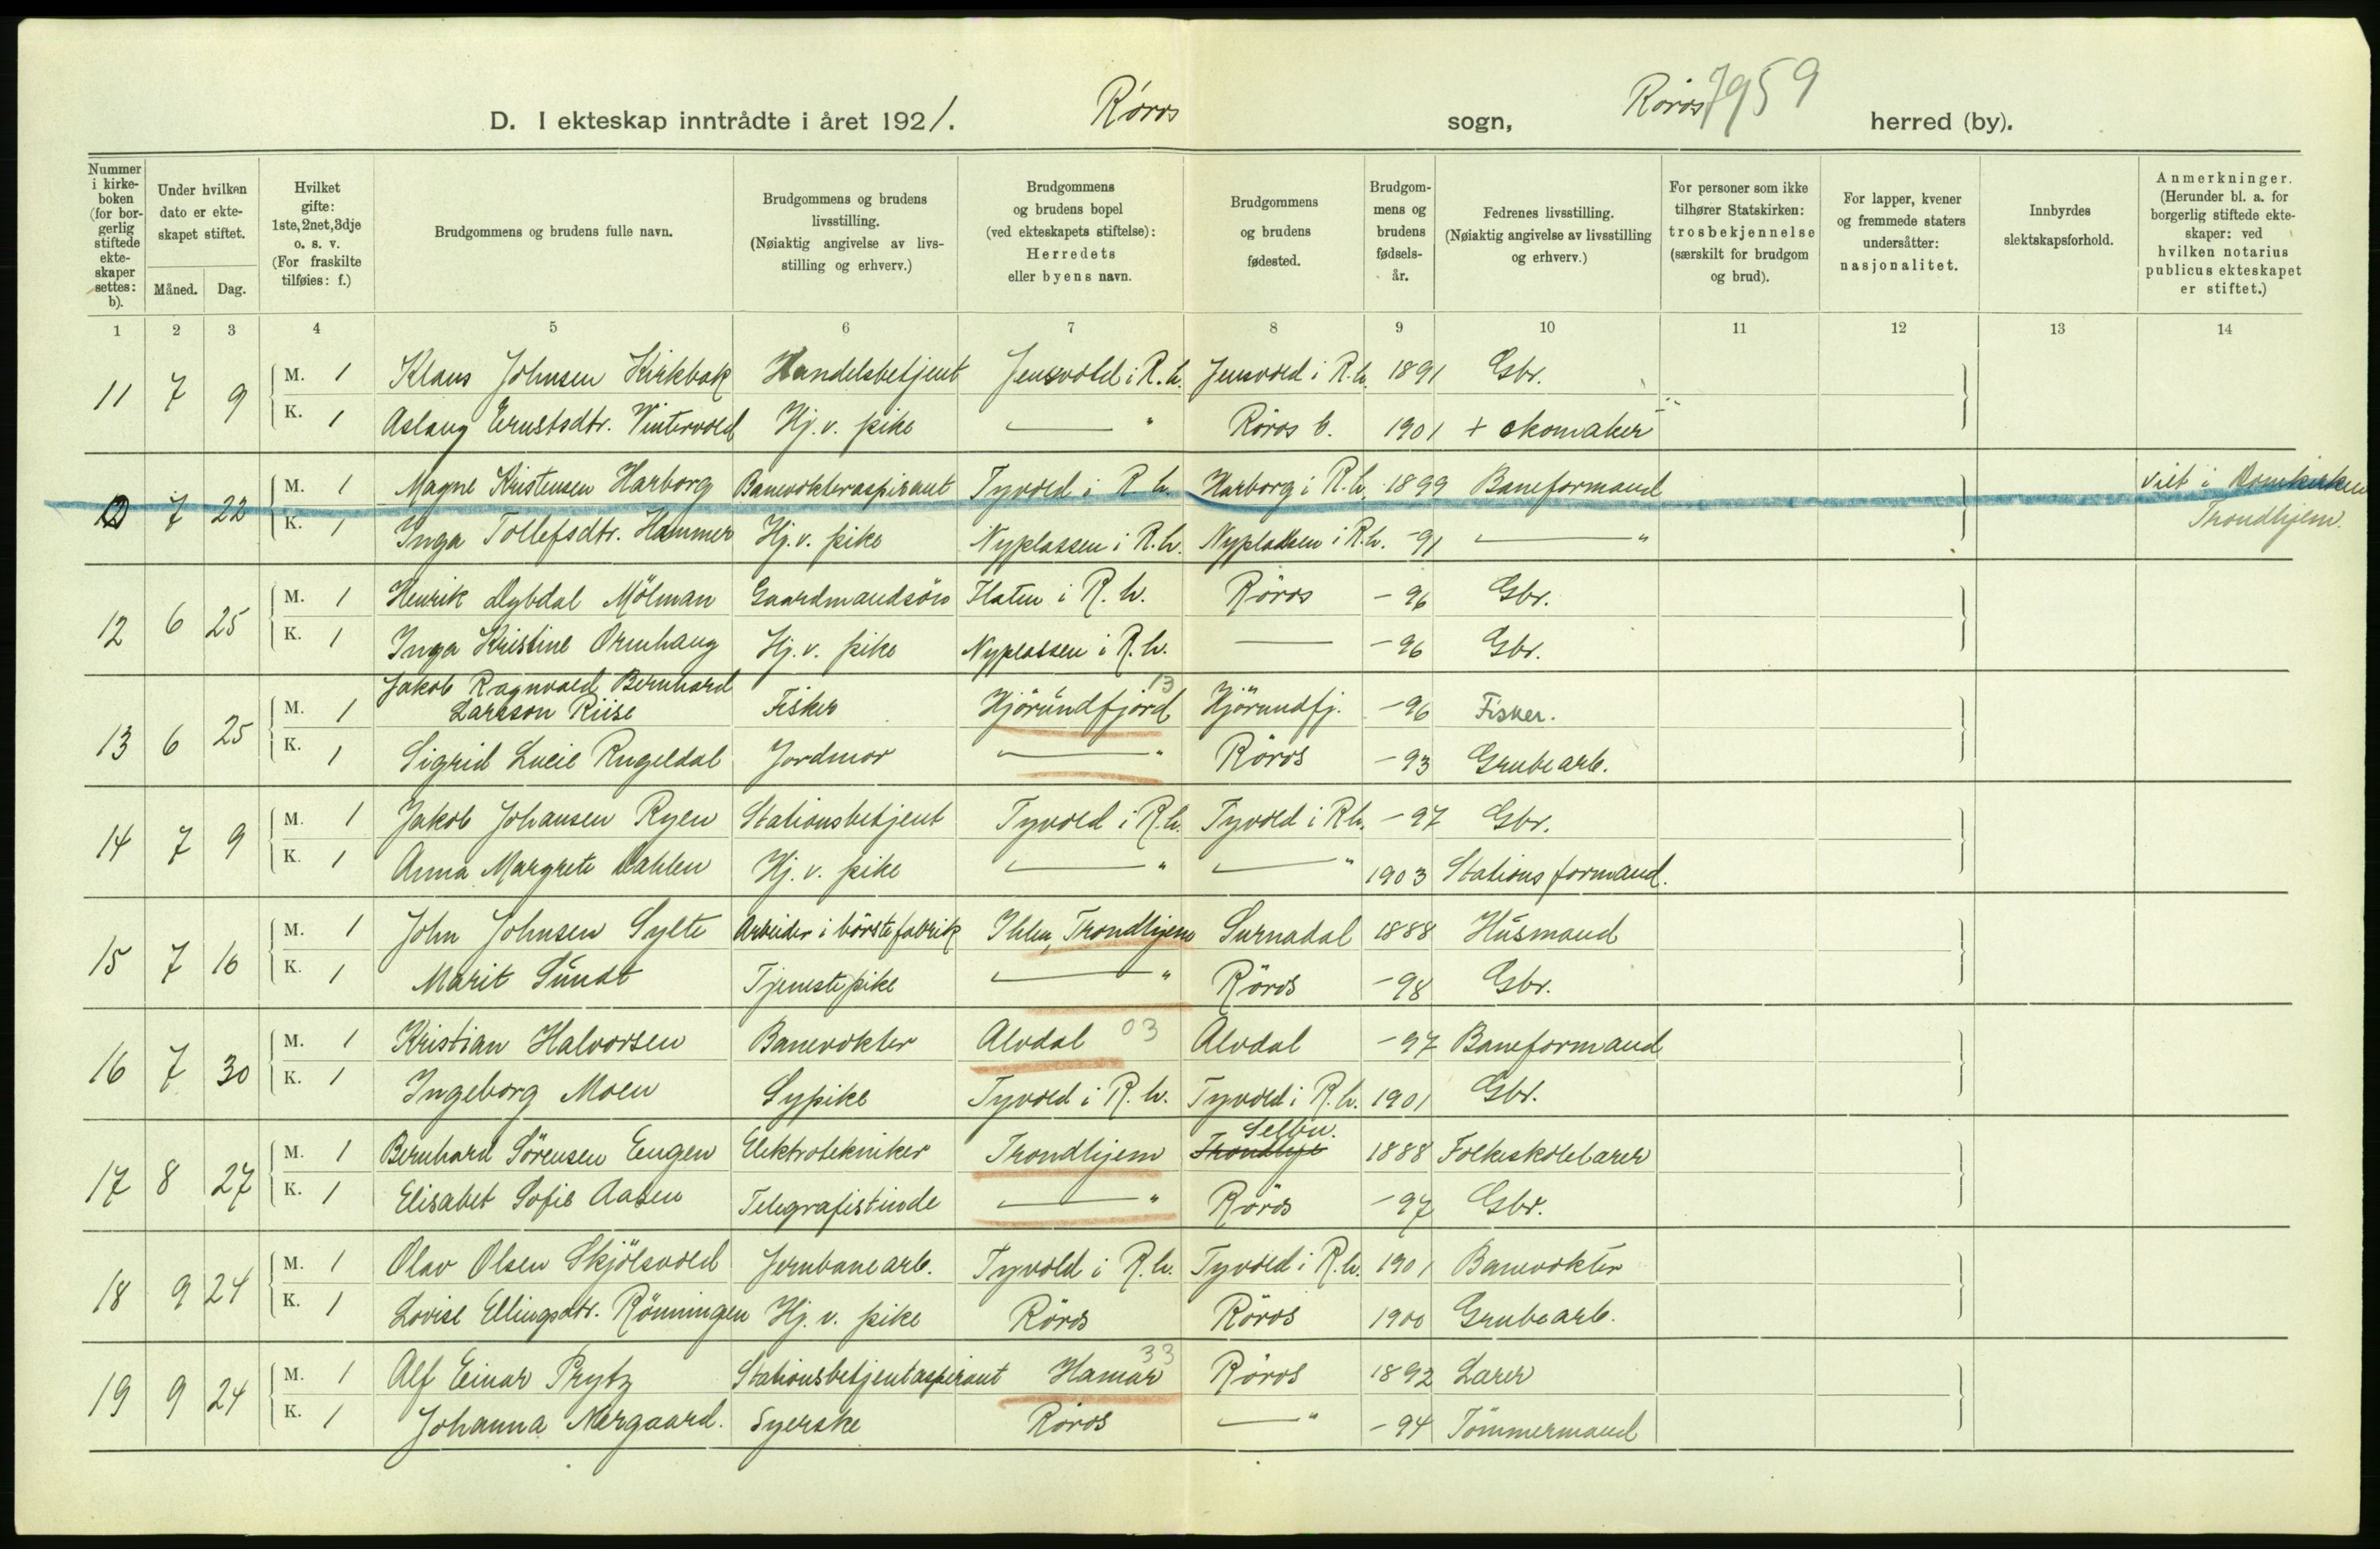 D. I ekteskap inntrådte i året 1921. Røros sogn, Røros herred (by). 7959
Nummer i kirke-boken (for bor-gerlig stiftede ekte-skaper settes: b).
Under hvilken dato er ekte-skapet stiftet.
Måned. Dag.
Hvilket gifte: 1ste, 2net, 3dje o. s. v. (For fraskilte tilføies: f.)
Brudgommens og brudens fulle navn.
Brudgommens og brudens livsstilling. (Nøiaktig angivelse av livs-stilling og erhverv.)
Brudgommens og brudens bopel (ved ekteskapets stiftelse): Herredets eller byens navn.
Brudgommens og brudens fødested.
Brudgom-mens og brudens fødsels-år.
Fedrenes livsstilling. (Nøiaktig angivelse av livsstilling og erhverv.)
For personer som ikke tilhører Statskirken: trosbekjennelse (særskilt for brudgom og brud).
For lapper, kvener og fremmede staters undersåtter: nasjonalitet.
Innbyrdes slektskapsforhold.
Anmerkninger. (Herunder bl. a. for borgerlig stiftede ekte-skaper: ved hvilken notarius publicus ekteskapet er stiftet.)
1 2 3 4 5 6 7 8 9 10 11 12 13 14
11 7 9 M. 1 Klaus Johnsen Kirkbak Handelsbetjent Jensvold i R. h. Jensvold i R. h. 1891 Gbr.
K. 1 Aslaug Ernstsdtr. Vintervold Hj. v. pike — " Röros b. 1901 + skomaker
12 7 22 M. 1 Magne Kristensen Harborg Banevokteraspirant Tyvold i R. h. Harborg i R. h. 1899 Baneformand viet i Domkirken
K. 1 Inga Tollefsdtr. Hammer Hj. v. pike Nyplassen i R. h. Nyplassen i R. h. -91 — " Trondhjem.
12 6 25 M. 1 Henrik Dybdal Mölman Gaardmandsön Flaten i R. h. Röros -96 Gbr.
K. 1 Inga Kristine Ormhaug Hj. v. pike Nyplassen i R. h. — -96 Gbr.
Jakob Ragnvald Bernhard
13 6 25 M. 1 Larsson Riise Fisker Hjörundfjord 13 Hjörundfj. -96 Fisker.
K. 1 Sigrid Lucie Rugeldal Jordmor — " Röros -93 Grubearb.
14 7 9 M. 1 Jakob Johansen Ryen Stationsbetjent Tyvold i R. h. Tyvold i R. h. -97 Gbr.
K. 1 Anna Margrete Dahlen Hj. v. pike — " — " 1903 Stationsformand.
15 7 16 M. 1 John Johnsen Sylte Arbeider i börstefabrik Ihlen, Trondhjem Surnadal 1888 Husmand
K. 1 Marit Sundt Tjenestepike — " Röros -98 Gbr.
16 7 30 M. 1 Kristian Halvorsen Banevokter Alvdal 03 Alvdal -97 Baneformand
K. 1 Ingeborg Moen Sypike Tyvold i R. h. Tyvold i R. h. 1901 Gbr.
Selbu.
17 8 27 M. 1 Bernhard Sörensen Engen Elektrotekniker Trondhjem Trondhje 1888 Folkeskolelærer
K. 1 Elisabet Sofie Aasen Telegrafistinde — " Röros -97 Gbr.
18 9 24 M. 1 Olav Olsen Skjölsvold Jernbanearb. Tyvold i R. h. Tyvold i R. h. 1901 Banevokter
K. 1 Lovise Ellingsdtr. Rönningen Hj. v. pike Röros Röros 1900 Grubearb.
19 9 24 M. 1 Alf Einar Prytz Stationsbetjentaspirant Hamar 33 Röros 1892 Lærer
K. 1 Johanna Nergaard. Syerske Röros — " -94 Tömmermand